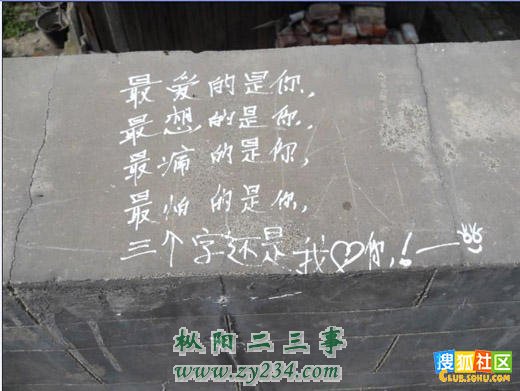 最爱的是你,
最想的是你,
最痛的是你,
最怕的是你,
三个字还是我♡你,!一
枞阳二三事
www.zy234.com
搜狐社区
CLUB.SOHU.COM